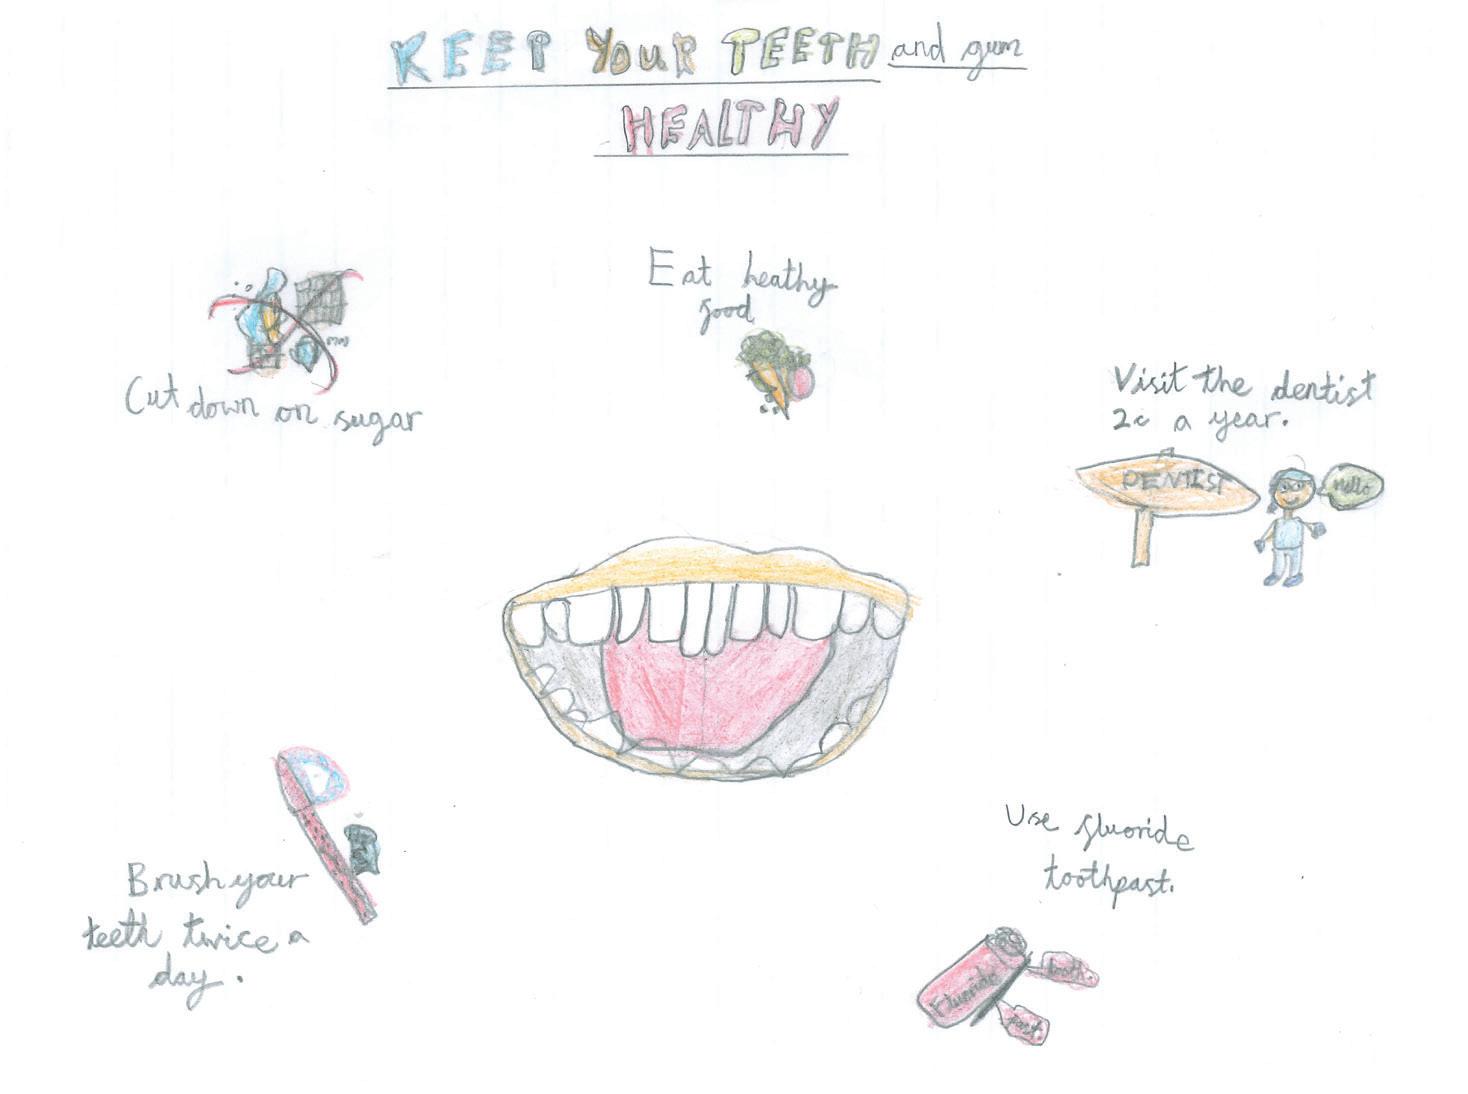 KEEP YOUR TEETH and gum
HEALTHY
Eat heathy
food
Cut down on sugar
Visit the dentist
2x a year.
DENTIST
Hello
Brush your
teeth twice a
day.
Use fluoride
toothpast.
Fluoride
tooth
past